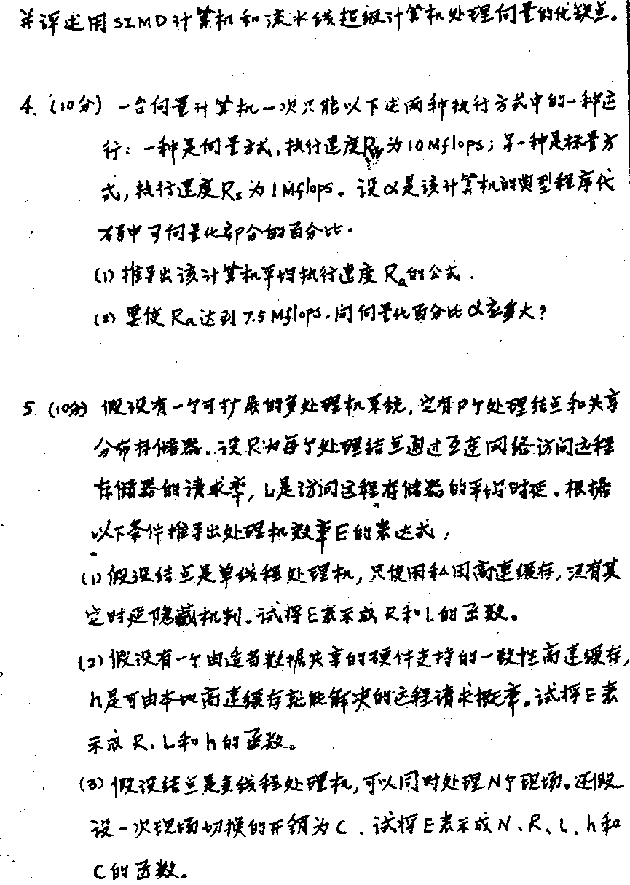 并评述用SIMD计算机和流水线超级计算机处理向量的优缺点。
4. (10分) 一台向量计算机一次只能以下述两种执行方式中的一种运
行：一种是向量方式，执行速度Rv为10Mflops；另一种是标量方
式，执行速度Rs为1Mflops。设α是该计算机的典型程序代
码中可向量化部分的百分比.
(1) 推导出该计算机平均执行速度Ra的公式.
(2) 要使Ra达到7.5Mflops.问向量化百分比α应多大?
5. (10分) 假设有一个可扩展的多处理机系统，它有P个处理结点和共享
分布存储器.设R为每个处理结点通过互连网络访问远程
存储器的请求率，L是访问远程存储器的平均时延.根据
以下条件推导出处理机效率E的表达式：
(1) 假设结点是单线程处理机，只使用私用高速缓存，没有其
它时延隐藏机制.试将E表示成R和L的函数。
(2) 假设有一个由适当数据共享的硬件支持的一致性高速缓存，
h是可由本地高速缓存就能解决的远程请求概率。试将E表
示成R、L和h的函数。
(3) 假设结点是多线程处理机，可以同时处理N个现场.还假
设一次现场切换的开销为C.试将E表示成N、R、L、h和
C的函数。